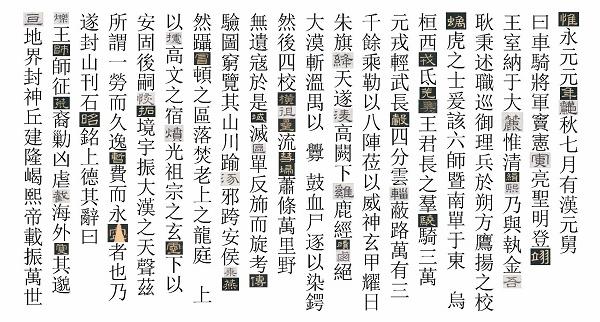 惟永元元年龝秋七月有漢元舅
曰車騎將軍竇憲寅亮聖明登翊
王室納于大麓惟清緝熙乃與執金吾
耿秉述職巡御理兵於朔方鷹揚之校
螭虎之士爰該六師暨南單于東 烏
桓西戎氐羌王君長之羣驍騎三萬
元戎輕武長轂四分雲輜蔽路萬有三
千餘乘勒以八陣莅以威神玄甲耀日
朱旗絳天遂凌高闕下雞鹿經磧鹵絕
大漠斬溫禺以 釁 鼓血尸逐以染鍔
然後四校橫徂星流彗掃蕭條萬里野
無遺寇於是域滅區單反斾而旋考傳
驗圖窮覽其山川踰涿邪跨安侯乘燕
然躡冒頓之區落焚老上之龍庭 上
以攄高文之宿憤光祖宗之玄靈下以
安固後嗣恢拓境宇振大漢之天聲茲
所謂一勞而久逸暫費而永寧者也乃
遂封山刊石昭銘上德其辭曰
鑠王師征荒裔勦凶虐截海外夐其邈
亘地界封神丘建隆嵑熙帝載振萬世